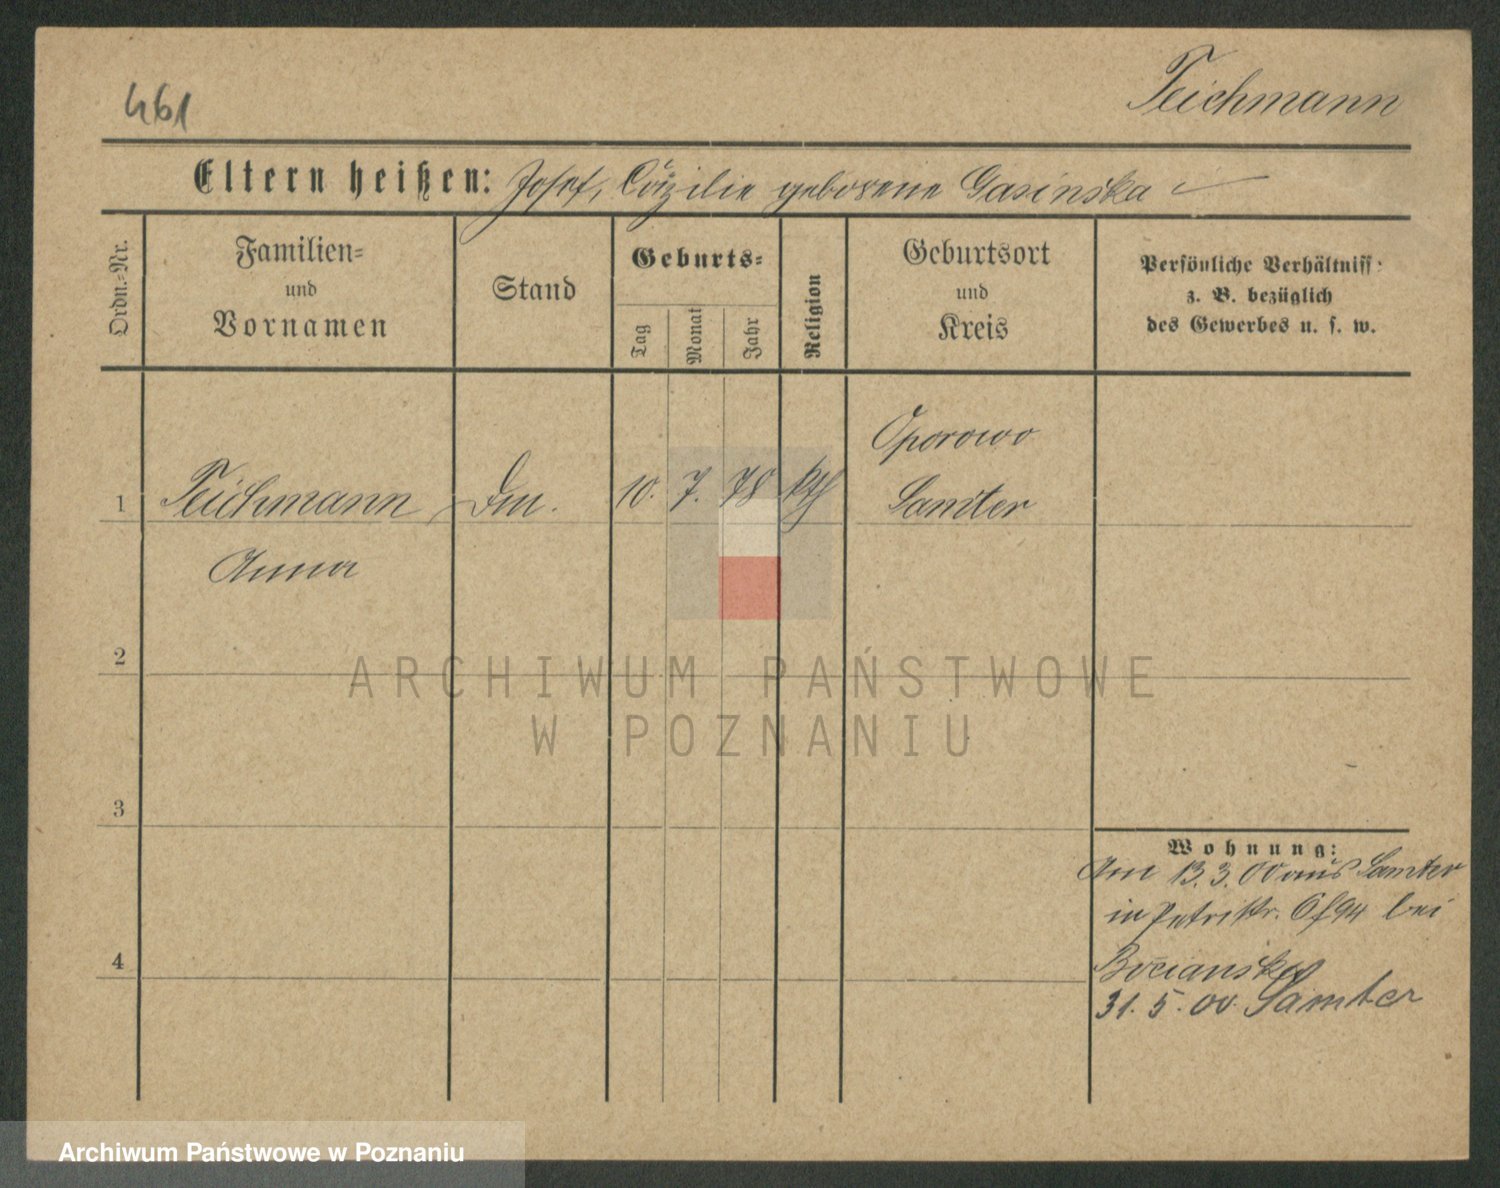 461
Teichmann
Eltern heißen: Josef, Cäzilie geborene Gasinska
Ordn.-Nr.
Familien-
und
Vornamen
Stand
Geburts-
Tag
Monat
Jahr
Religion
Geburtsort
und
Kreis
Persönliche Verhältniss:
z. B. bezüglich
des Gewerbes u. s. w.
1 Teichmann Dm. 10. 7. 78 kth Oporowo
Samter
Anna
2
ARCHIWUM PAŃSTWOWE
W POZNANIU
3
Wohnung:
Am 13.3.00 aus Samter
in Petristr. 6/94 bei
Bocianska
4
31.5.00 Samter
Archiwum Państwowe w Poznaniu